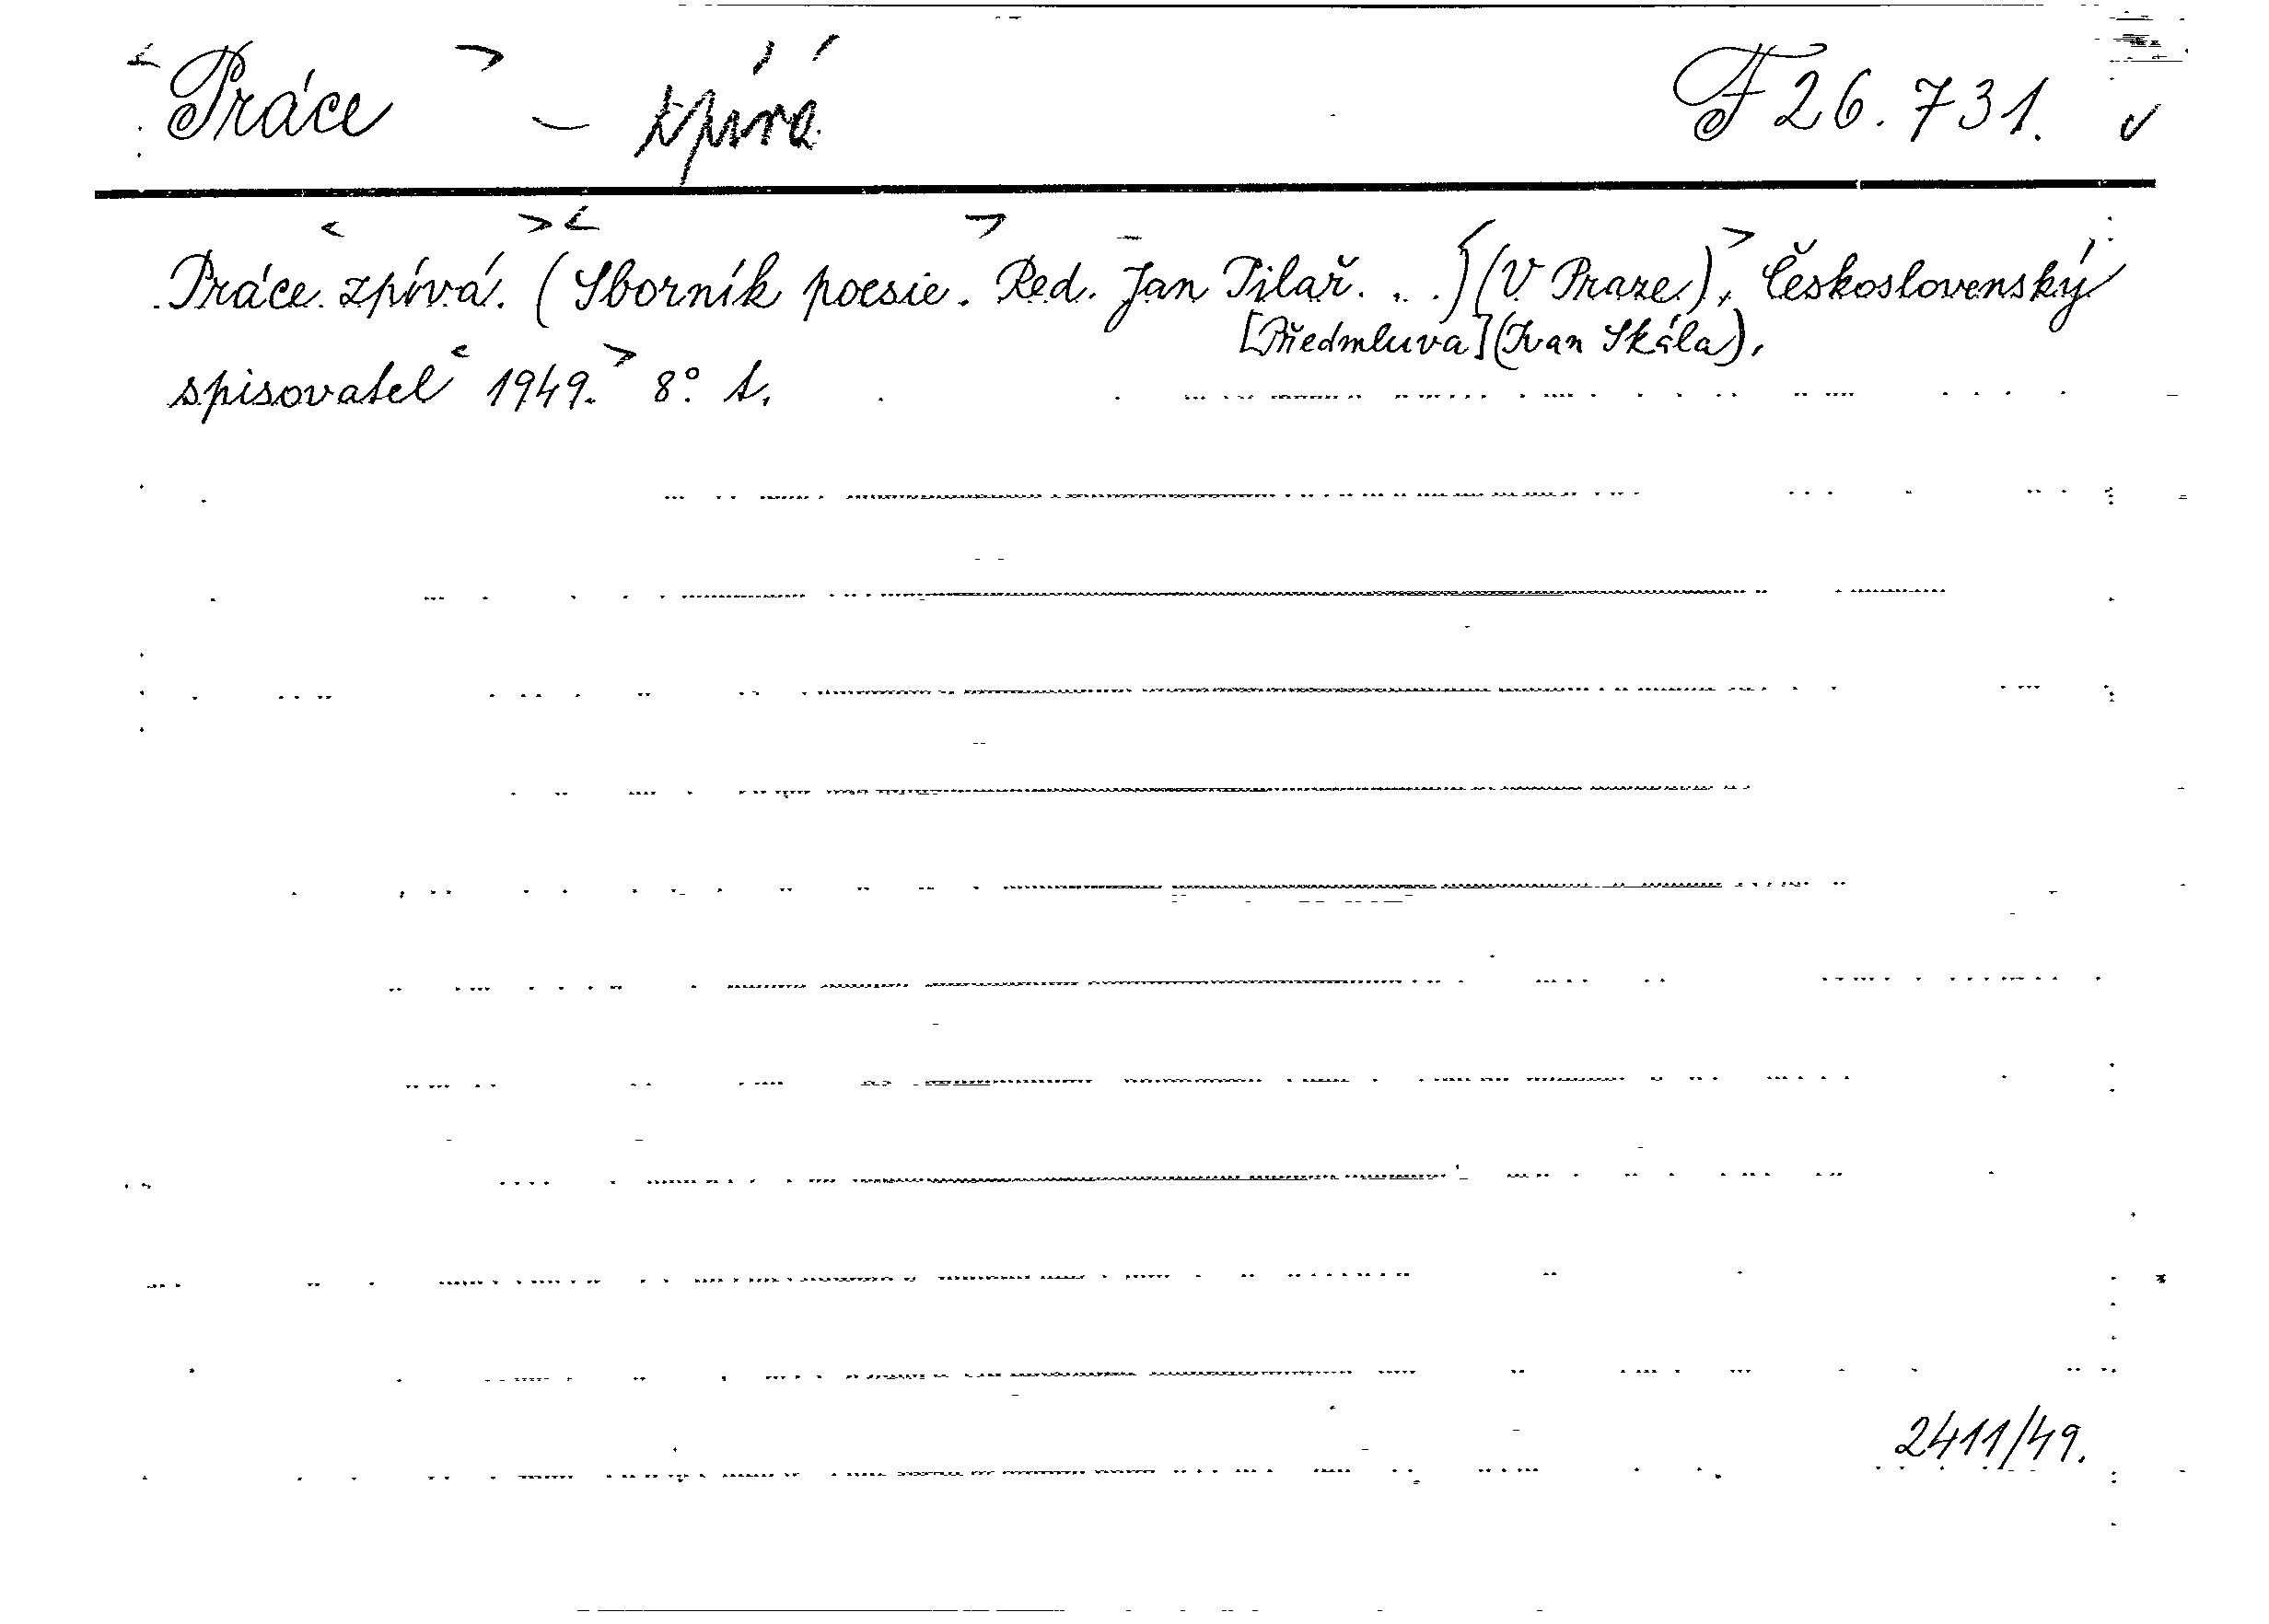 Práce – zpívá F 26.731.
Práce zpívá. (Sborník poesie. Red. Jan Pilař. . .) (V Praze), Československý
[Předmluva] (Ivan Skála).
spisovatel 1949. 8°. t.
2411/49.